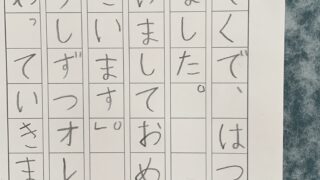 くで、はつ
ました。
いましておめ
います」。
しずつオレ
っていきま